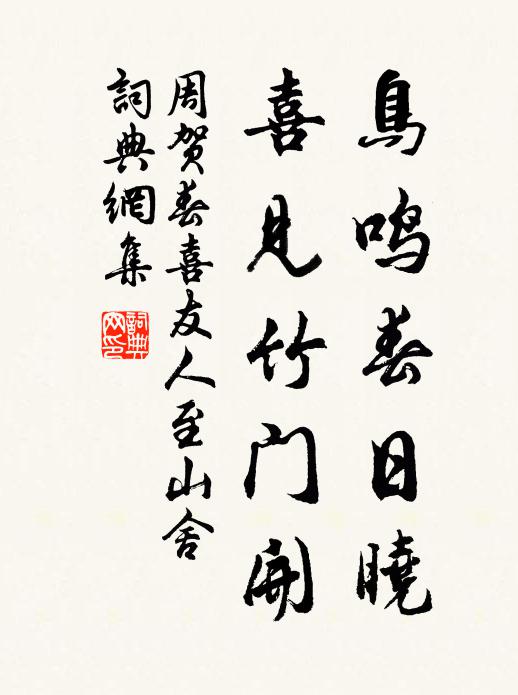 鳥鳴春日曉
喜見竹門開
周賀春喜友人至山舍
詞典網集
詞典
网印